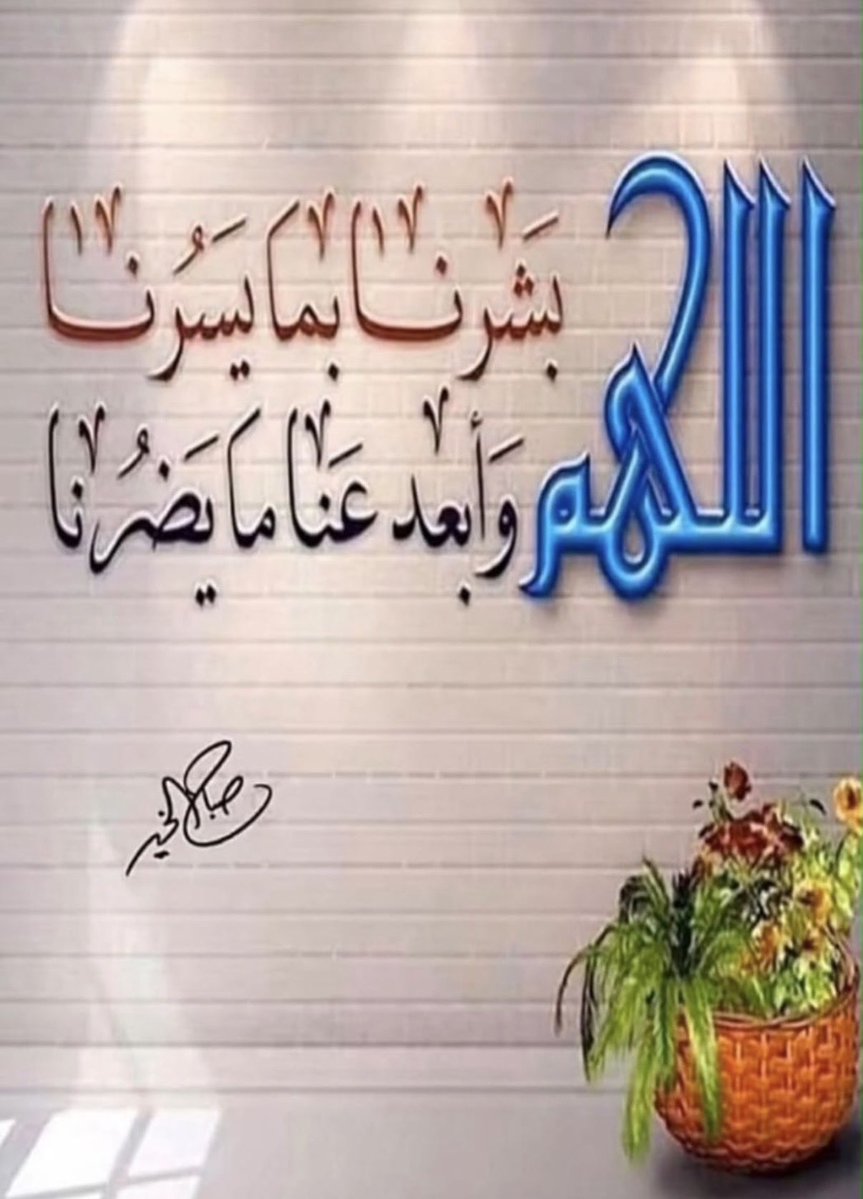 اللهم
بشرنا بما يسرنا
وأبعد عنا ما يضرنا
صباح الخير